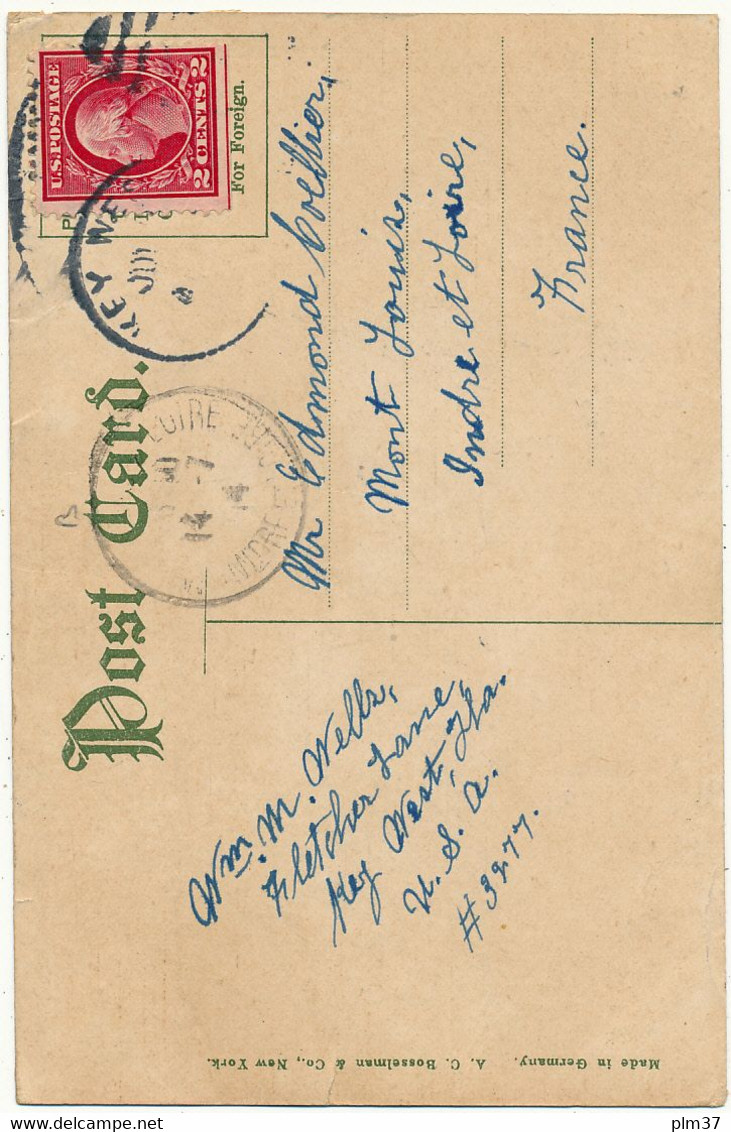 Post Card.
U.S. POSTAGE
2 CENTS 2
For Foreign.
KEY WES
LOIRE
14 - 7
14
INDRE
Mr Edmond Coellier,
Mont Louis,
Indre et Loire,
France.
Wm. M. Wells,
Fletcher Lane,
Key West, Fla.
U. S. A.
#3277.
Made in Germany. A. C. Bosselman & Co., New York.
plm37